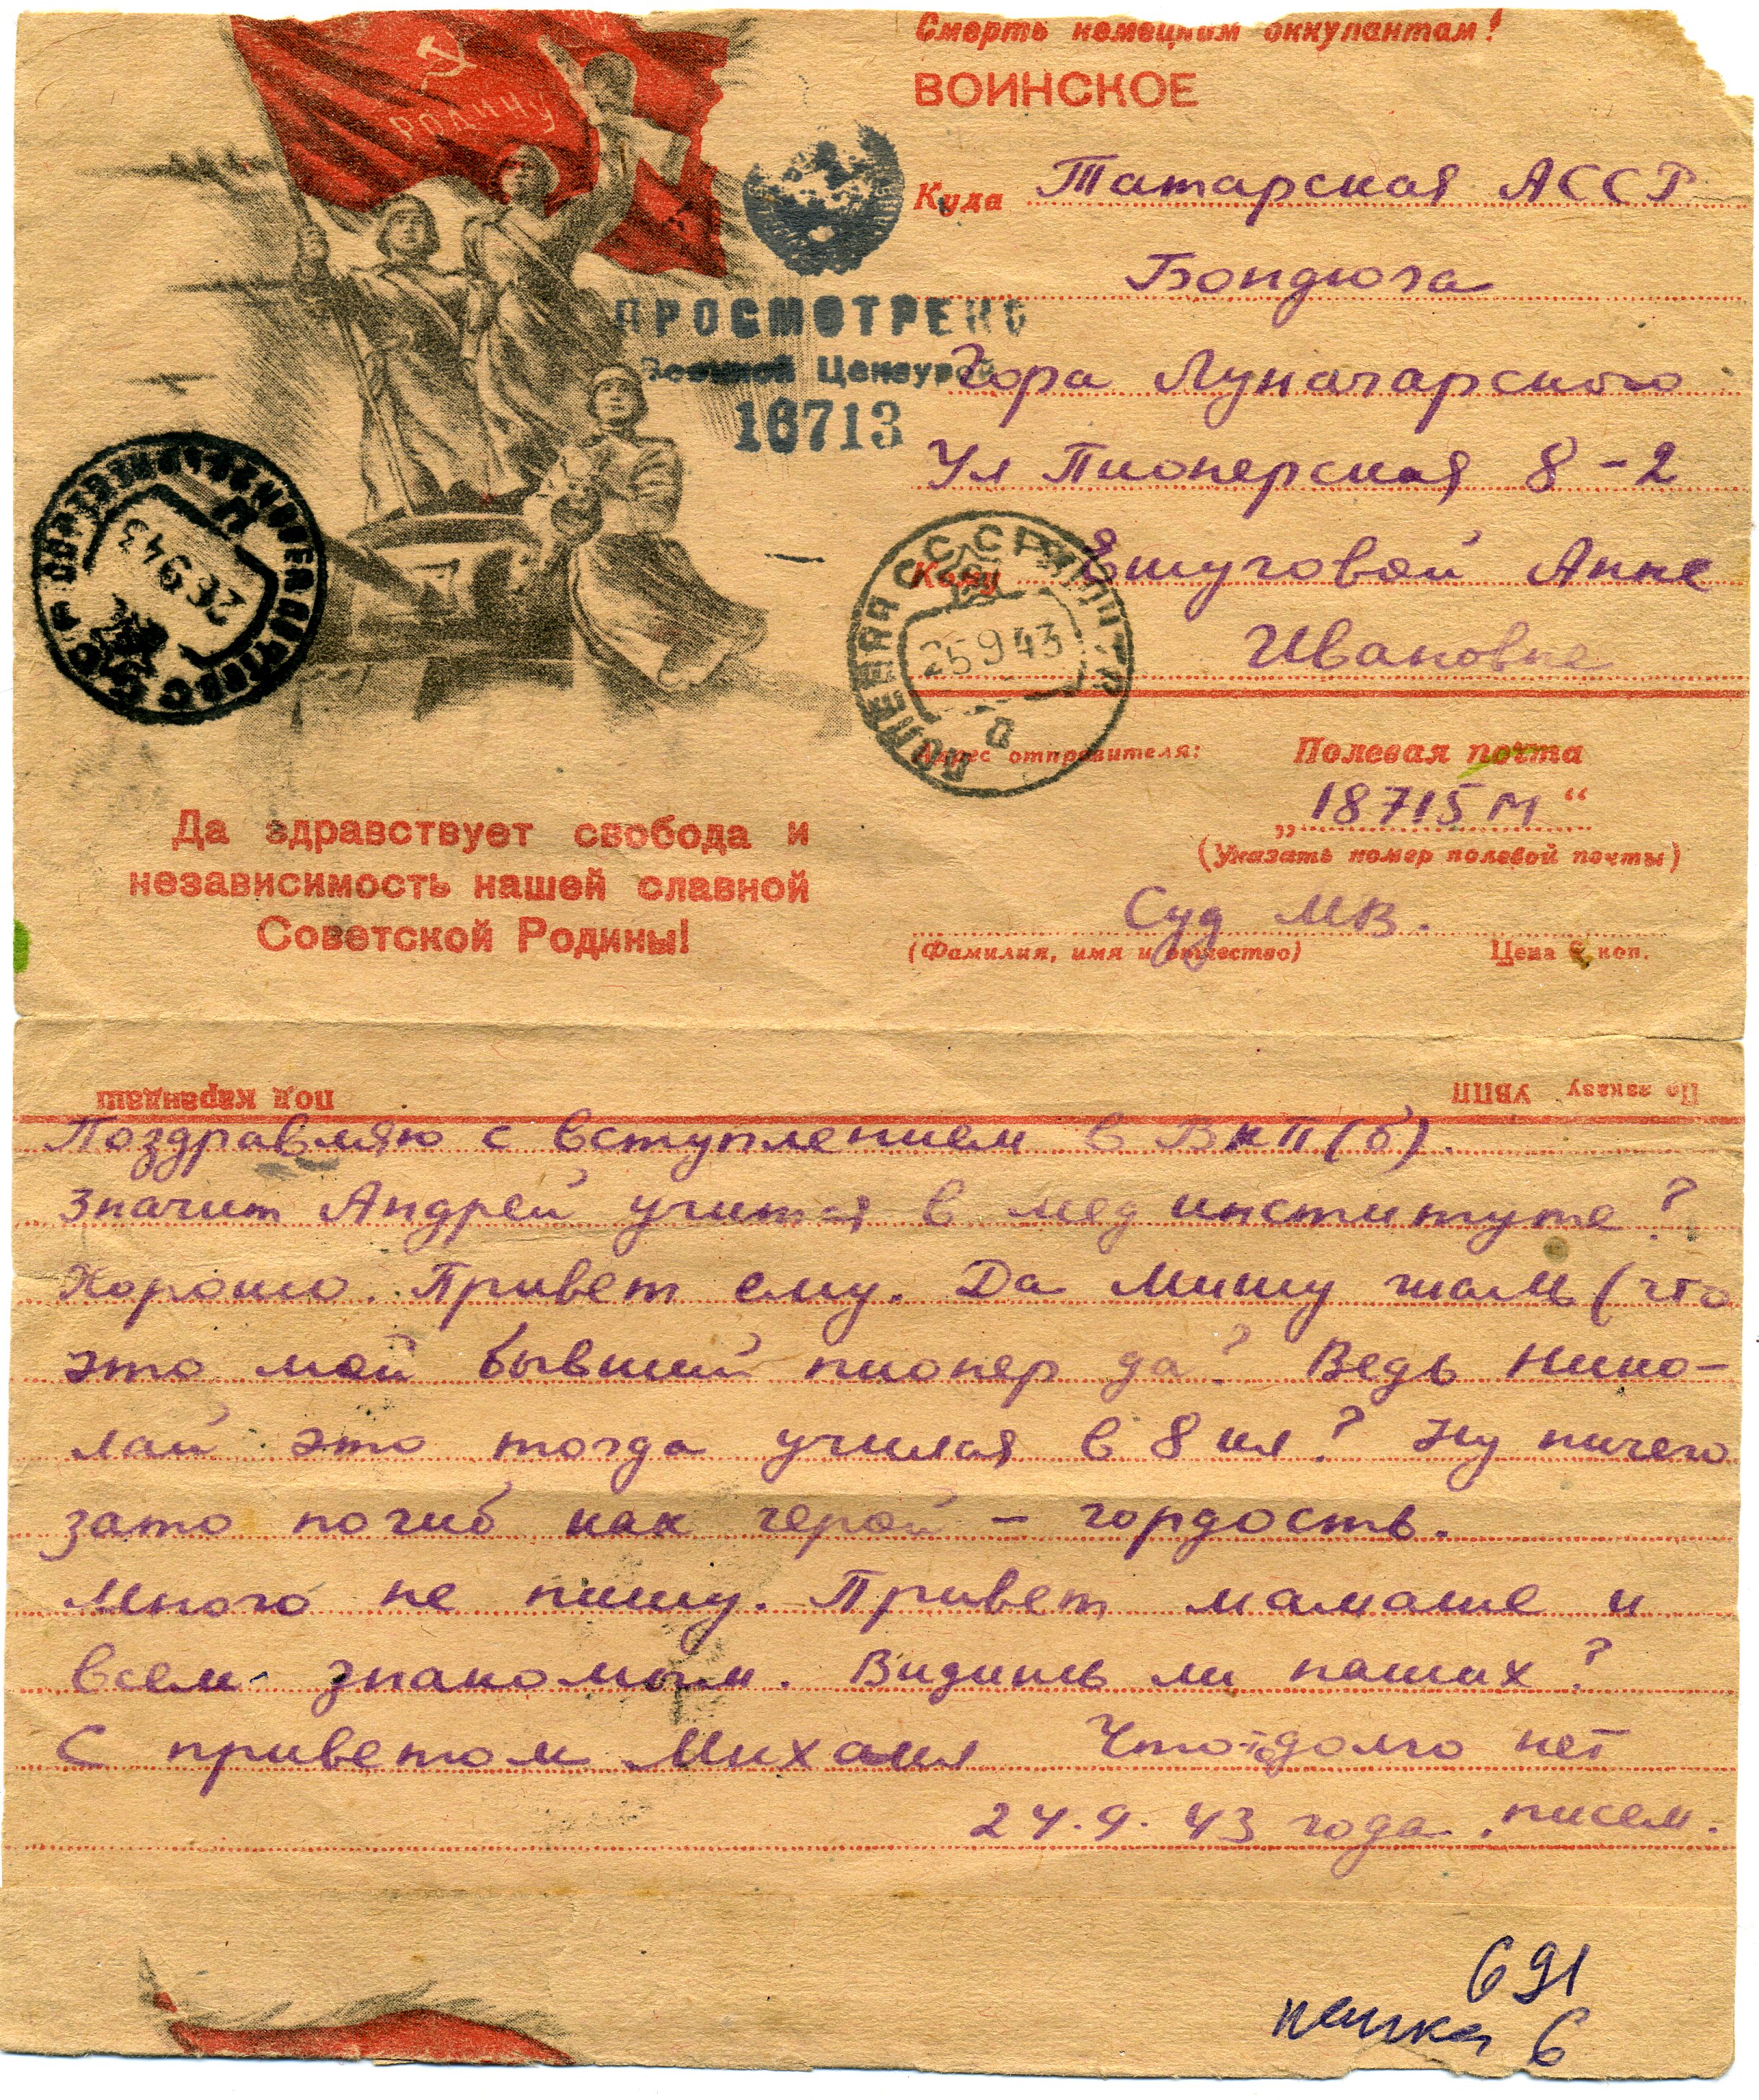 РОДИНУ
Смерть немецким оккупантам!
ВОИНСКОЕ
Куда Татарская АССР
Бондюга
ПРОСМОТРЕНО
Военной Цензурой
16713
Гора Луначарского
Ул Пионерская 8-2
Кому Яшуговой Анне
Ивановне
26 9 43
ПОЛЕВАЯ
25 9 43
Адрес отправителя: Полевая почта
„18715 М“
(Указать номер полевой почты)
Суд МВ.
(Фамилия, имя и отчество) Цена 6 коп.
Да здравствует свобода и
независимость нашей славной
Советской Родины!
под карандаш
По заказу УВПП
Поздравляю с вступлением в ВКП(б).
Значит Андрей учится в мед институте?
Хорошо. Привет ему. Да Мишу жаль (что
это мой бывший пионер да? Ведь Нико-
лай это тогда учился в 8 кл? Ну ничего
зато погиб как герой – гордость.
Много не пишу. Привет мамаше и
всем знакомым. Видишь ли наших?
С приветом Михаил Что-то долго нет
24.9.43 года. писем.
691
папка 6